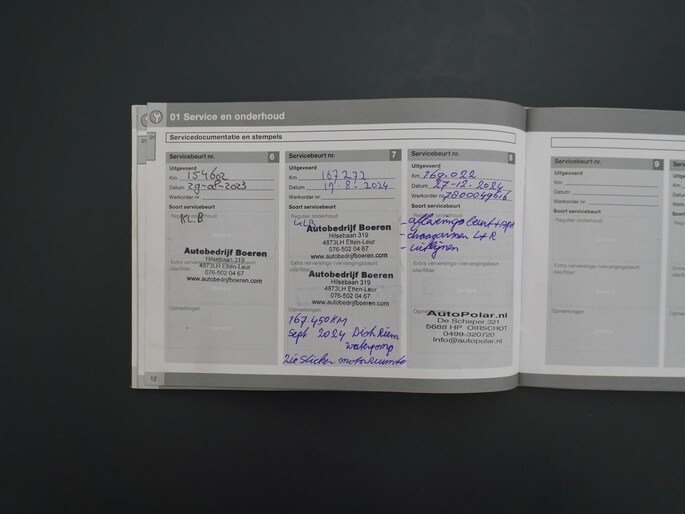 01 Service en onderhoud
Servicedocumentatie en stempels
Servicebeurt nr. 6
Uitgevoerd
Km 154602
Datum 29-08-2023
Werkorder nr.
Soort servicebeurt
Regulier onderhoud
KLB
Autobedrijf Boeren
Hilsebaan 319
4873LH Etten-Leur
076-502 04 67
www.autobedrijfboeren.com
Extra verversings-/vervangingsbeurt
olie/filter:
Opmerkingen:
Servicebeurt nr. 7
Uitgevoerd
Km 167272
Datum 19-8-2024
Werkorder nr.
Soort servicebeurt
Regulier onderhoud
KLB
Autobedrijf Boeren
Hilsebaan 319
4873LH Etten-Leur
076-502 04 67
www.autobedrijfboeren.com
Autobedrijf Boeren
Hilsebaan 319
4873LH Etten-Leur
076-502 04 67
www.autobedrijfboeren.com
Opmerkingen:
167.450KM
Sept 2024 Distr Riem
waterpomp
Zie Sticker motorruimte
Servicebeurt nr. 8
Uitgevoerd
Km 169.022
Datum 27-12-2024
Werkorder nr. 7800049616
Soort servicebeurt
Regulier onderhoud
- afleveringsbeurt + apk
- draagarmen L+R
- uitlijnen
Extra verversings-/vervangingsbeurt
olie/filter:
Opmerkingen:
AutoPolar.nl
De Scheper 321
5688 HP OIRSCHOT
0499-320720
info@autopolar.nl
Servicebeurt nr. 9
Uitgevoerd
Km
Datum
Werkorder nr.
Soort servicebeurt
Regulier onderhoud
Extra verversings-/vervangingsbeurt
olie/filter:
Opmerkingen:
12